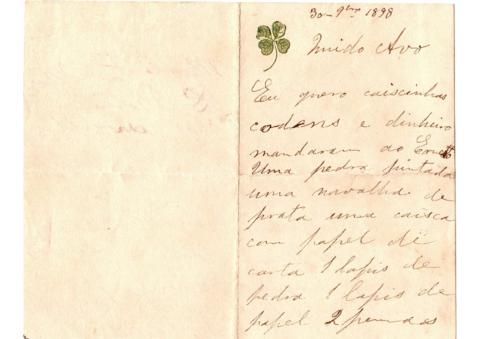 30-9bro 1898
Muido Avo
Eu quero caiscinhas
codens e dinheiro
mandaram ao
Uma pedra pintada
uma navalha de
prata uma caisca
com papel de
carta 1 lapis de
pedra 1 lapis de
papel 2 pennas